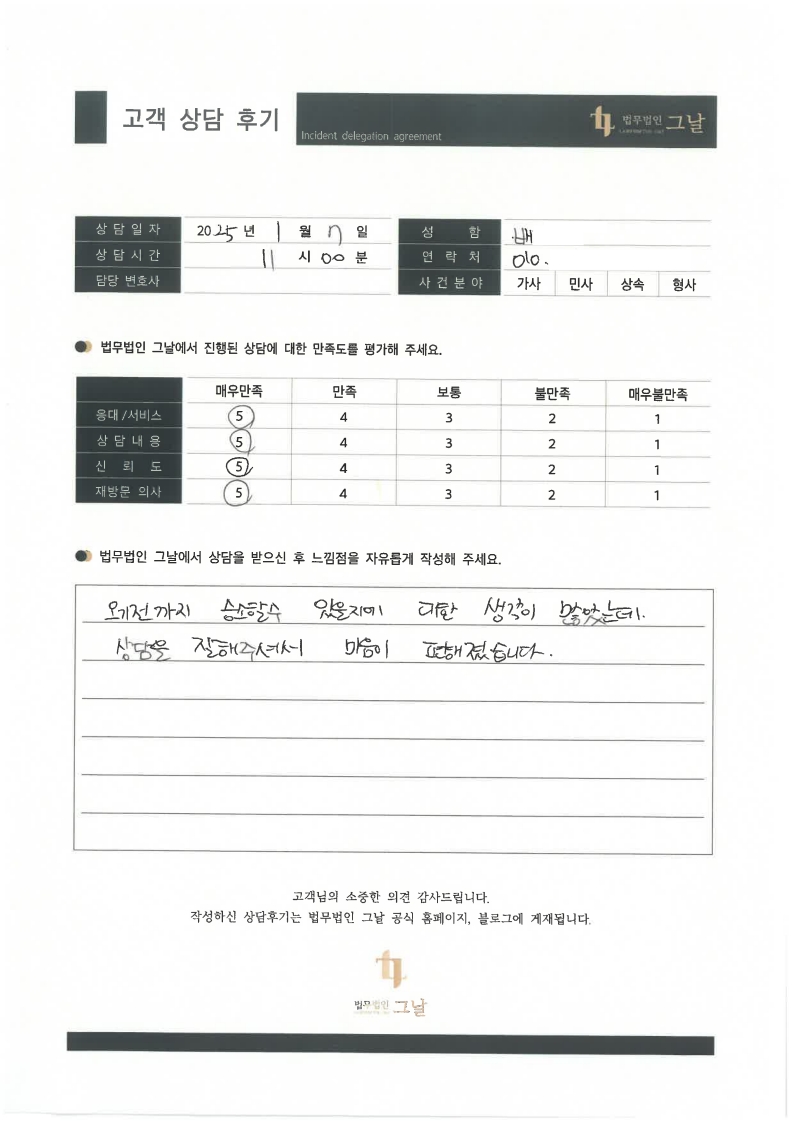 고객 상담 후기
Incident delegation agreement
법무법인 그날
상담일자 2025년 1월 7일
성 함 배
상담시간 11시 00분
연락처 010.
담당 변호사
사건분야 가사 민사 상속 형사
법무법인 그날에서 진행된 상담에 대한 만족도를 평가해 주세요.
매우만족 만족 보통 불만족 매우불만족
응대/서비스 5 4 3 2 1
상담내용 5 4 3 2 1
신 뢰 도 5 4 3 2 1
재방문 의사 5 4 3 2 1
법무법인 그날에서 상담을 받으신 후 느낌점을 자유롭게 작성해 주세요.
오기전까지 승소할수 있을지에 대한 생각이 많았는데.
상담을 잘해주셔서 마음이 편해졌습니다.
고객님의 소중한 의견 감사드립니다.
작성하신 상담후기는 법무법인 그날 공식 홈페이지, 블로그에 게재됩니다.
법무법인 그날